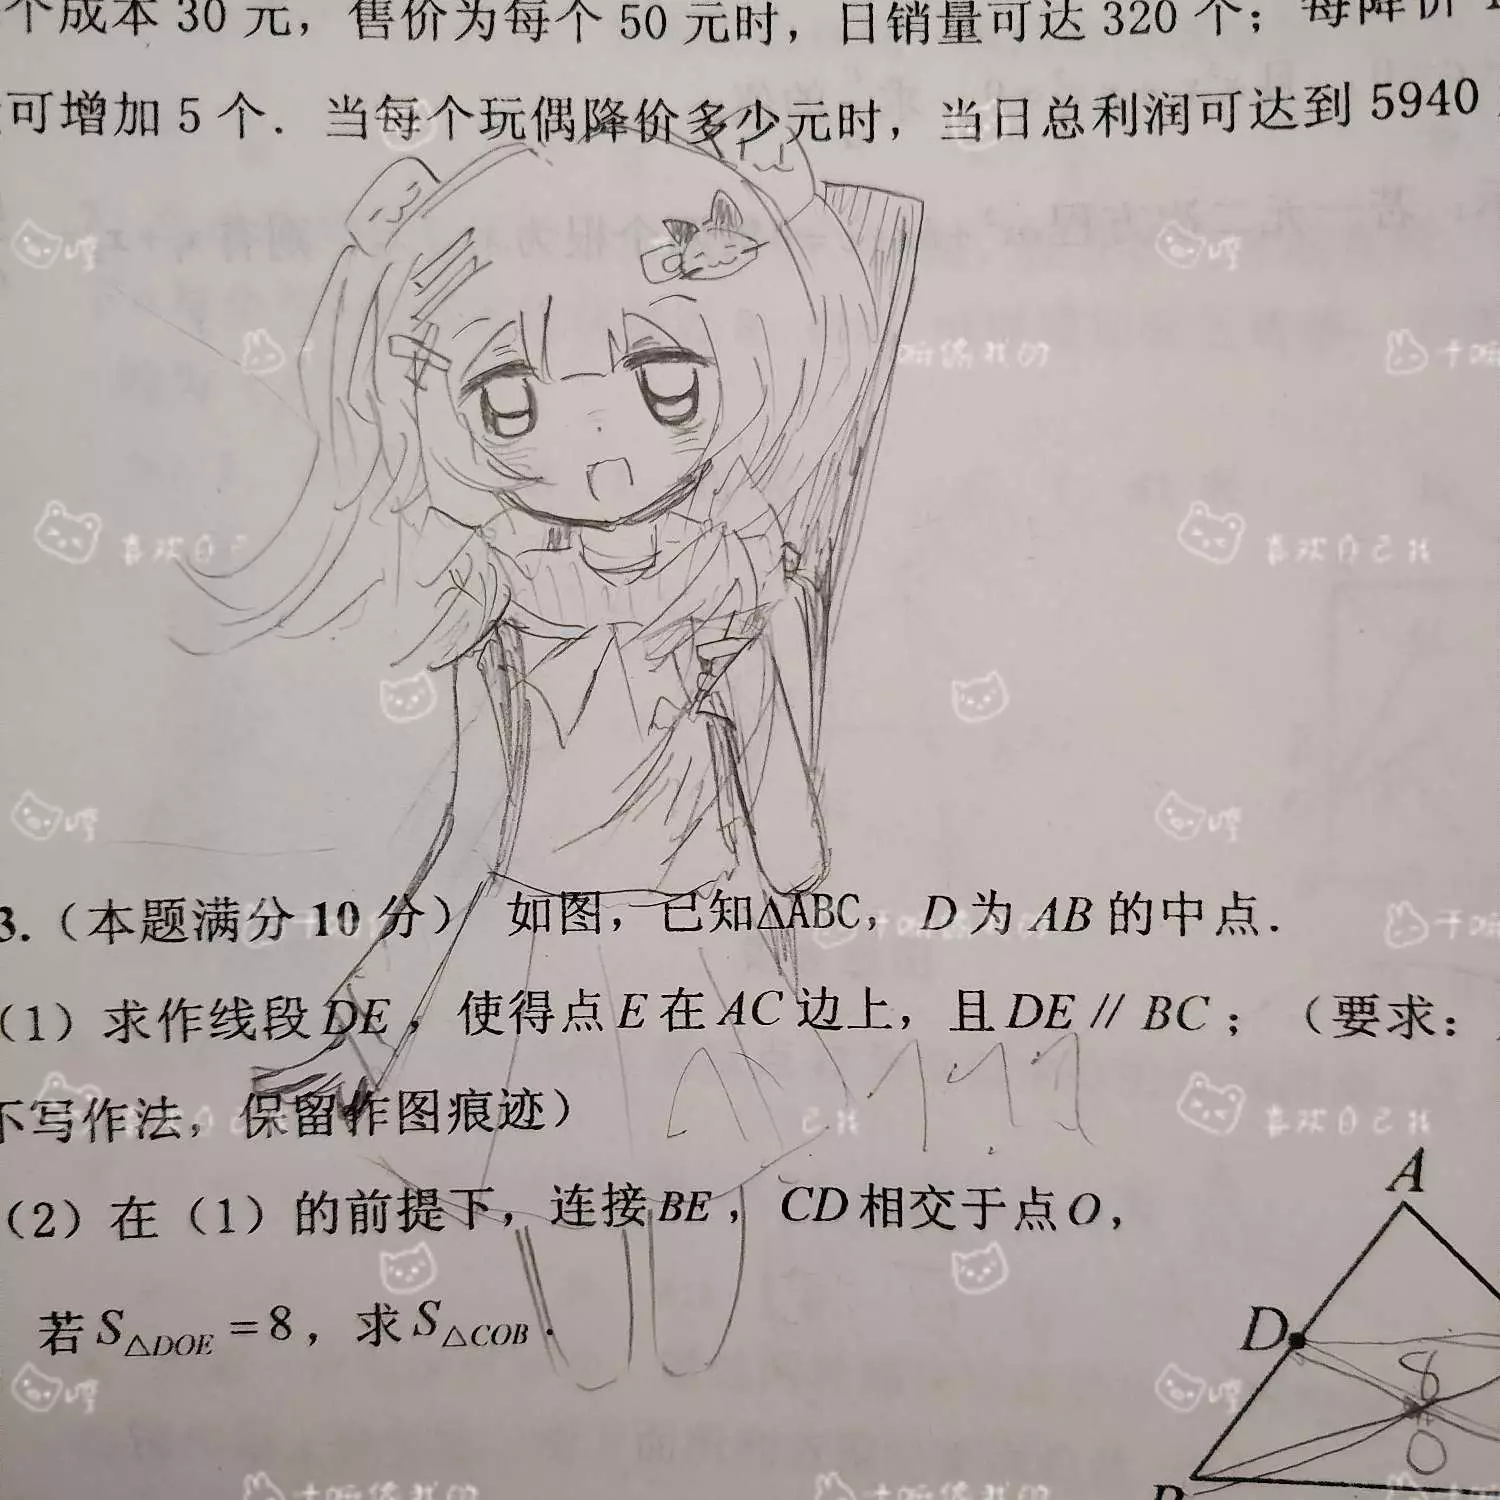 个成本 30 元，售价为每个 50 元时，日销量可达 320 个；每降价
可增加 5 个．当每个玩偶降价多少元时，当日总利润可达到 5940
3.（本题满分 10 分） 如图，已知△ABC，D 为 AB 的中点．
（1）求作线段 DE，使得点 E 在 AC 边上，且 DE // BC；（要求：
不写作法，保留作图痕迹）
（2）在（1）的前提下，连接 BE，CD 相交于点 O，
若 S△DOE =8，求 S△COB．
A
D
8
O
B
喜欢自己
喜欢自己找